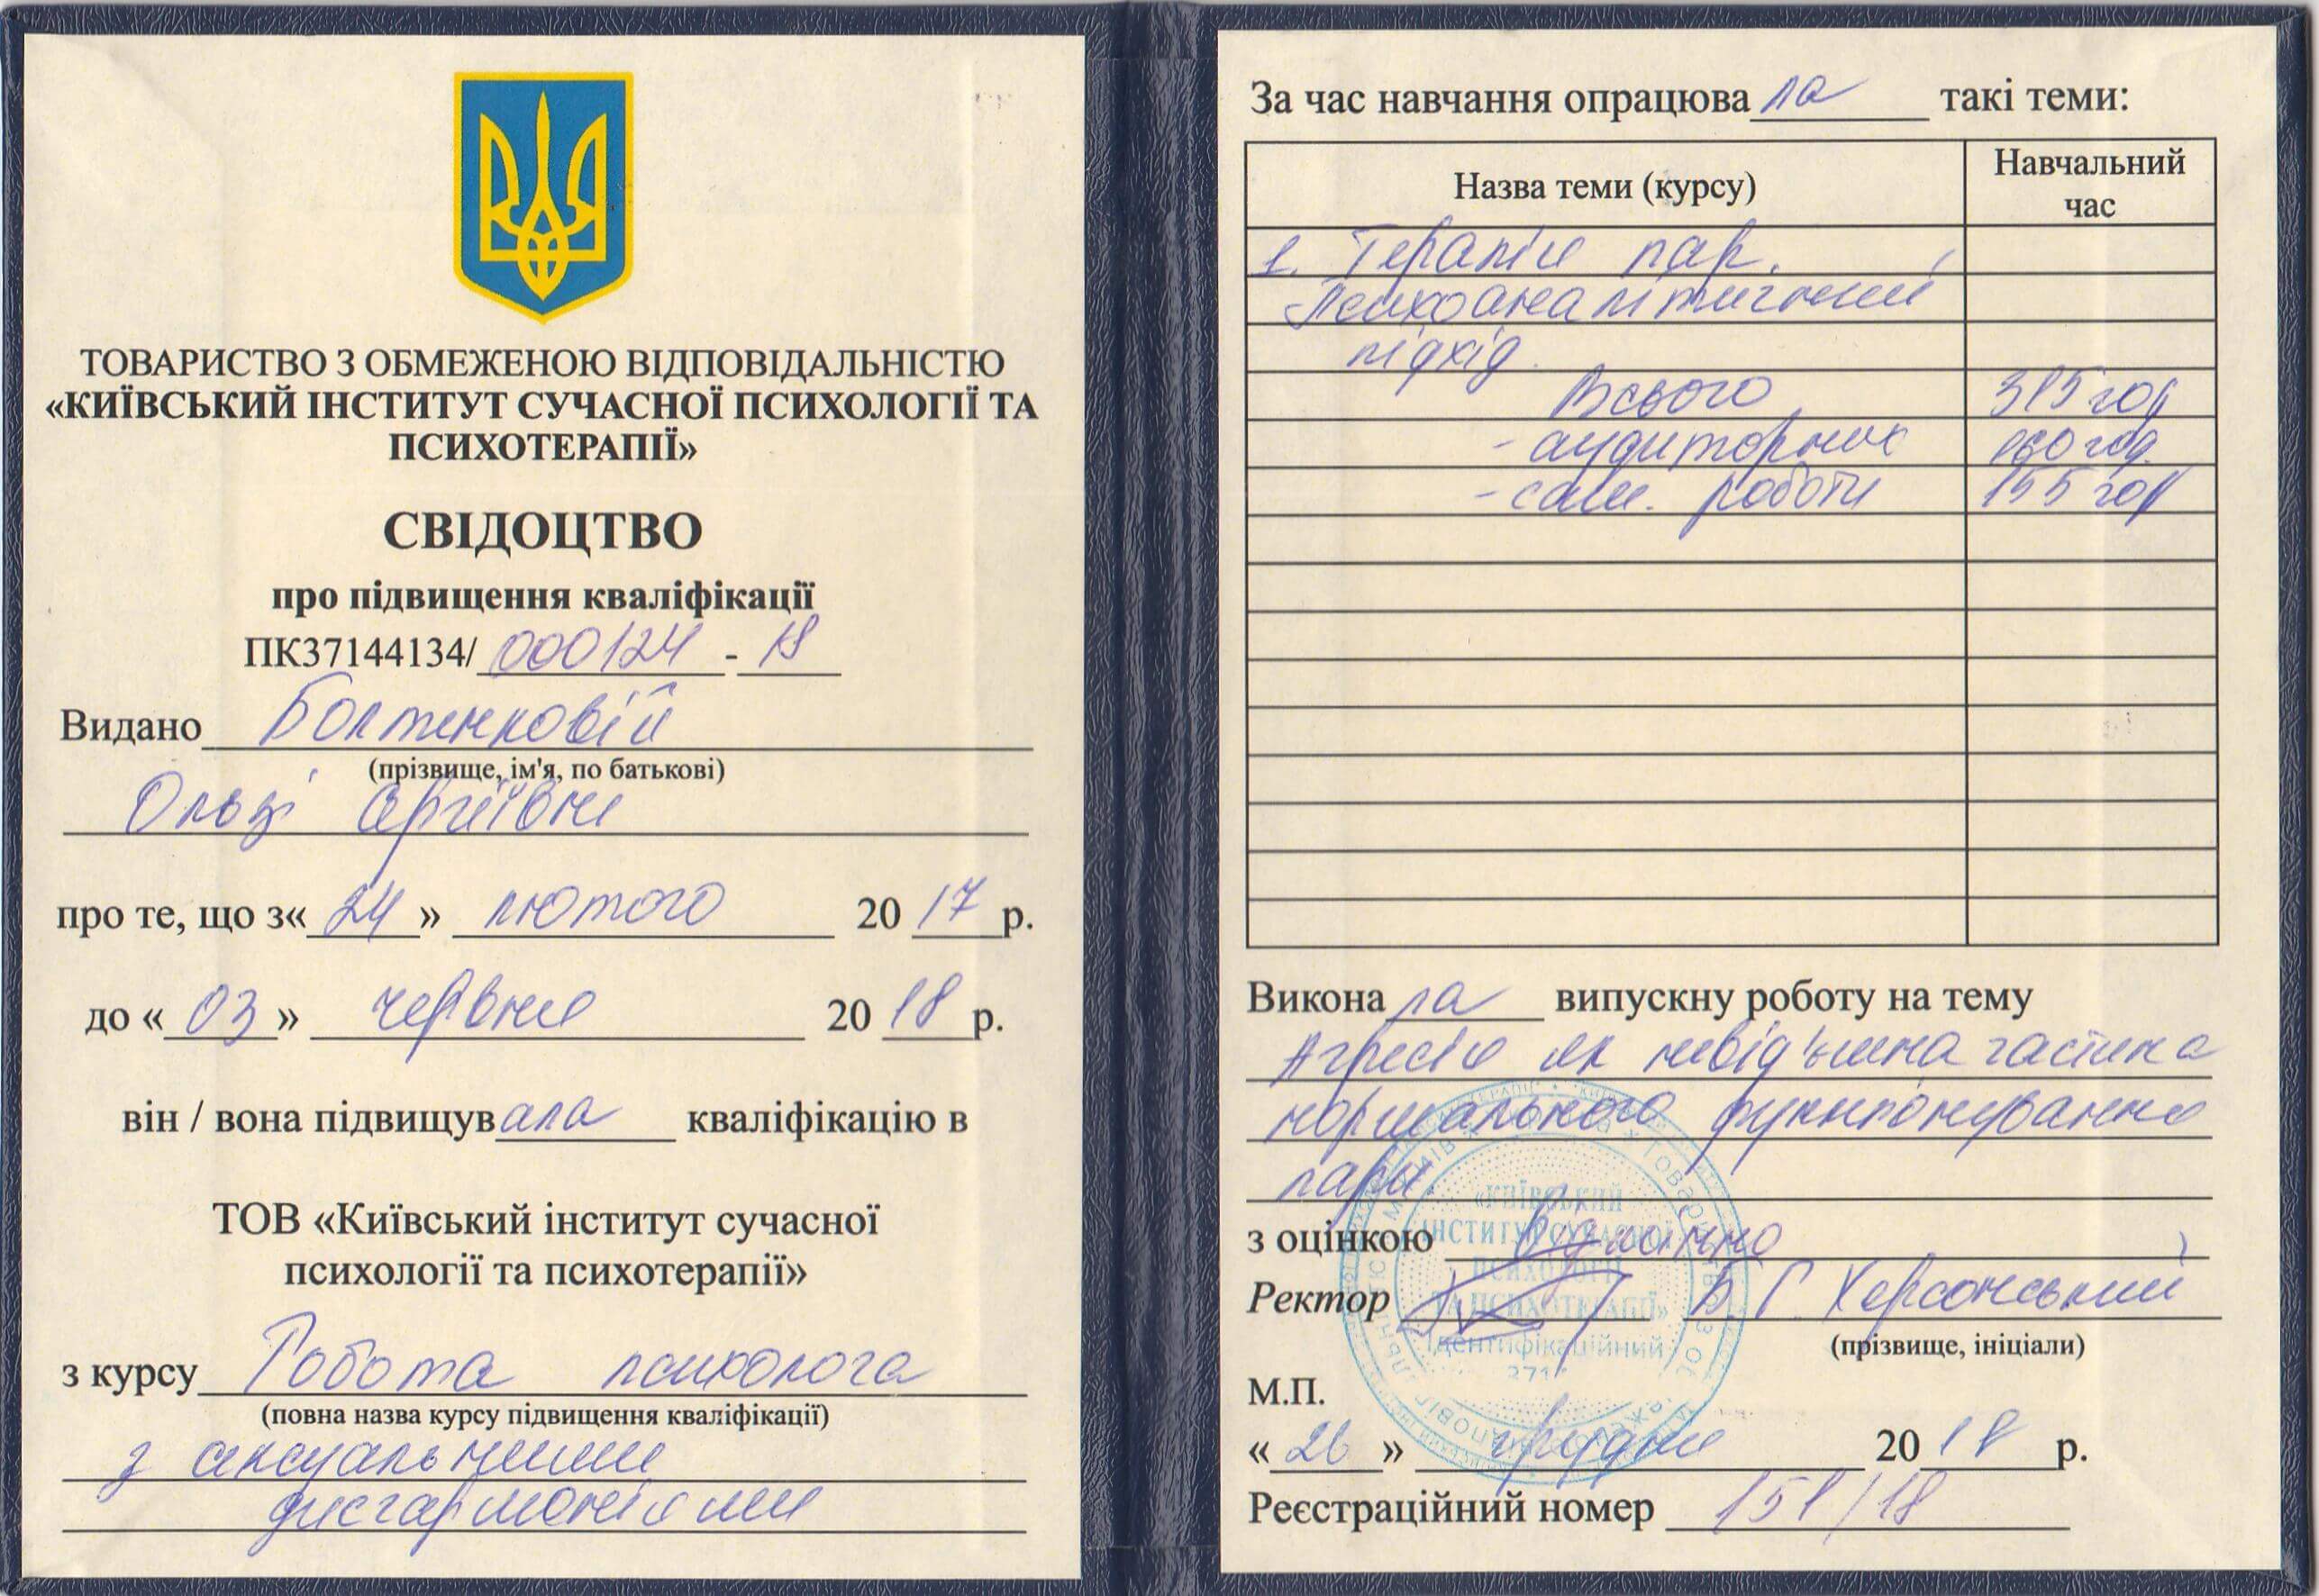 ТОВАРИСТВО З ОБМЕЖЕНОЮ ВІДПОВІДАЛЬНІСТЮ
«КИЇВСЬКИЙ ІНСТИТУТ СУЧАСНОЇ ПСИХОЛОГІЇ ТА
ПСИХОТЕРАПІЇ»
СВІДОЦТВО
про підвищення кваліфікації
ПК37144134/ 000124 - 18
Видано Болтенковій
(прізвище, ім'я, по батькові)
Ользі Сергіївні
про те, що з« 24 » лютого 20 17 р.
до « 03 » червня 20 18 р.
він / вона підвищувала кваліфікацію в
ТОВ «Київський інститут сучасної
психології та психотерапії»
з курсу Робота психолога
(повна назва курсу підвищення кваліфікації)
з сексуальними
дисгармоніями
За час навчання опрацювала такі теми:
Назва теми (курсу) Навчальний
час
1. Терапія пар.
Психоаналітичний
підхід.
Всього 315 год
- аудиторних 160 год.
- сам. роботи 155 год
Виконала випускну роботу на тему
Агресія як невід'ємна частина
нормального функціонування
пари.
з оцінкою Відмінно
Ректор Б Г Херсонський
(прізвище, ініціали)
М.П.
« 26 » грудня 20 18 р.
Реєстраційний номер 151/18
«КИЇВСЬКИЙ
ІНСТИТУТ СУЧАСНОЇ
ПСИХОЛОГІЇ
ТА ПСИХОТЕРАПІЇ»
Ідентифікаційний